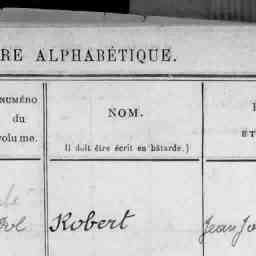 RE ALPHABÉTIQUE.
NUMÉRO
du
volume.
NOM.
(Il doit être écrit en bâtarde.)
ET
Robert
Jean Jo